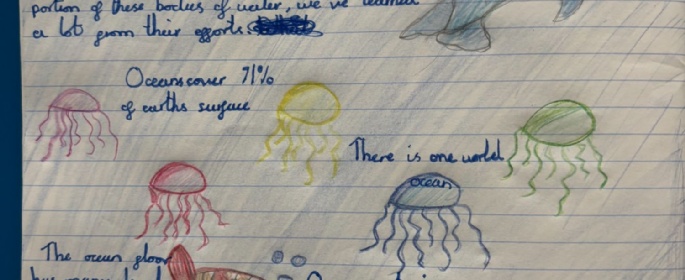 portion of these bodies of water, we've learned
a lot from their efforts.
Oceans cover 71%
of earths surface
There is one world
ocean
The ocean gloor